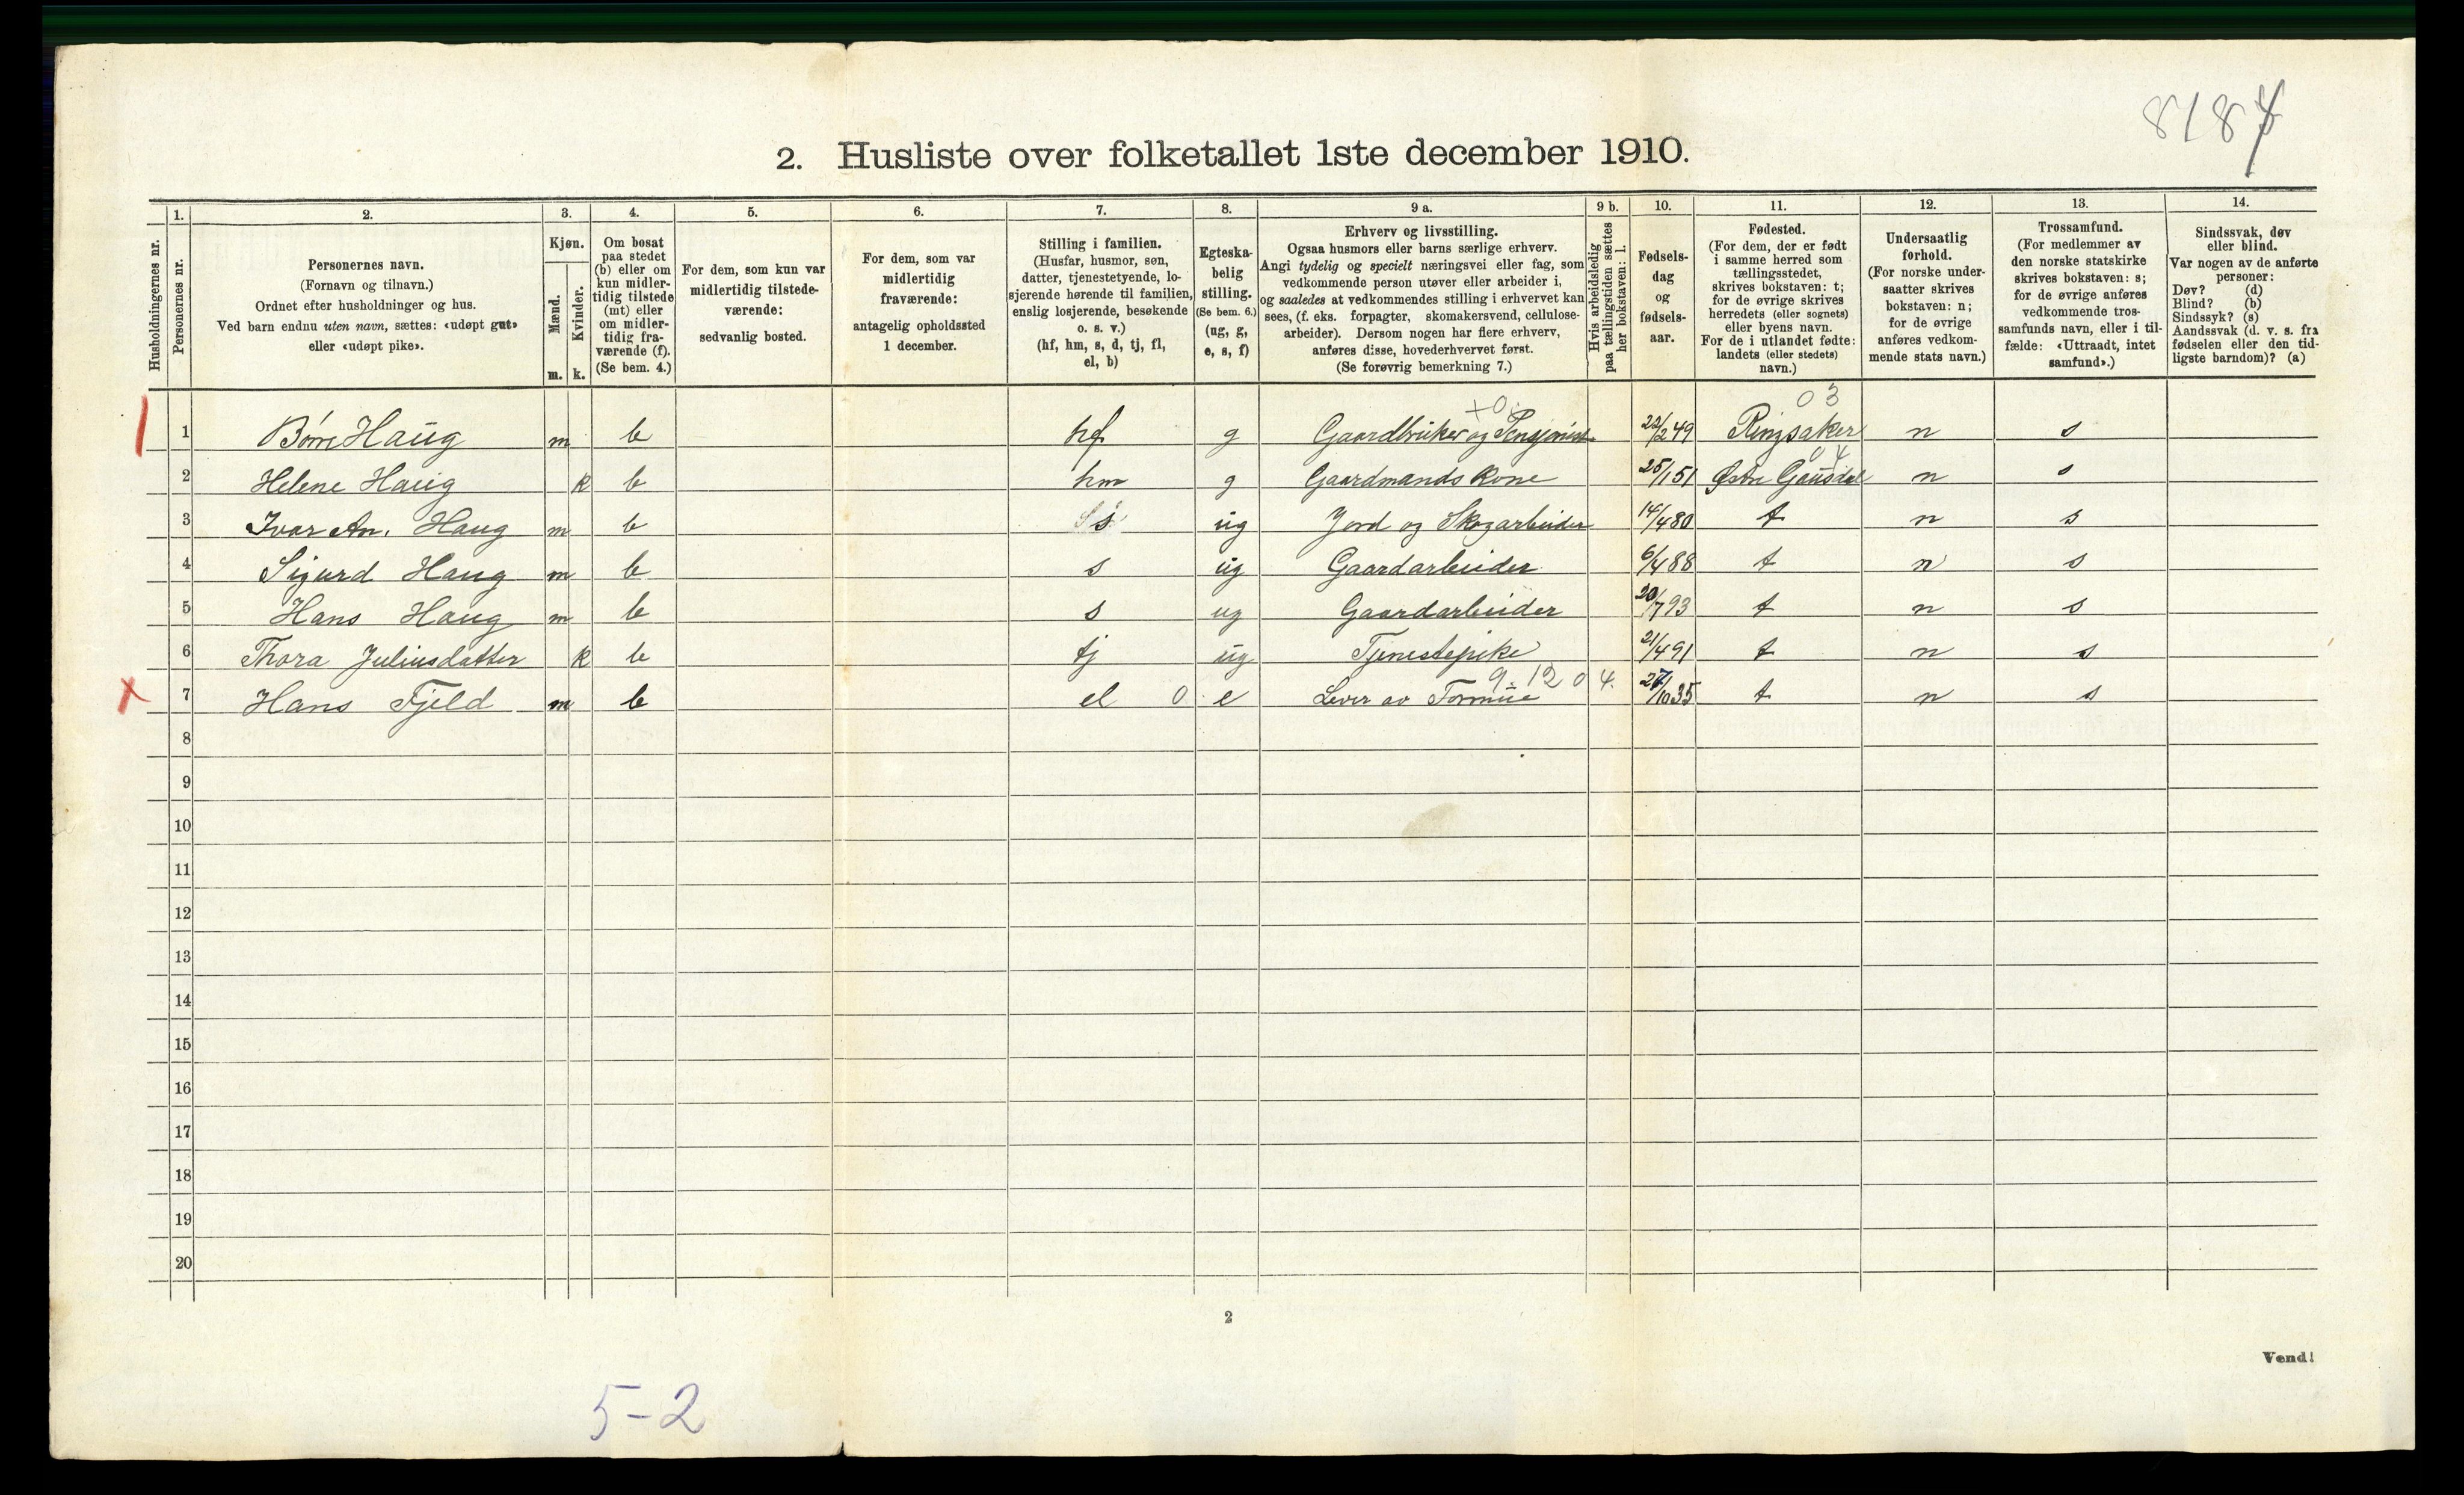 8184
2. Husliste over folketallet 1ste december 1910.
Husholdningernes nr.
1.
Personernes nr.
2.
Personernes navn.
(Fornavn og tilnavn.)
Ordnet efter husholdninger og hus.
Ved barn endnu uten navn, sættes: «udøpt gut»
eller «udøpt pike».
3.
Kjøn.
Mænd.
Kvinder.
m. k.
4.
Om bosat
paa stedet
(b) eller om
kun midler-
tidig tilstede
(mt) eller
om midler-
tidig fra-
værende (f).
(Se bem. 4.)
5.
For dem, som kun var
midlertidig tilstede-
værende:
sedvanlig bosted.
6.
For dem, som var
midlertidig
fraværende:
antagelig opholdssted
1 december.
7.
Stilling i familien.
(Husfar, husmor, søn,
datter, tjenestetyende, lo-
sjerende hørende til familien,
enslig losjerende, besøkende
o. s. v.)
(hf, hm, s, d, tj, fl,
el, b)
8.
Egteska-
belig
stilling.
(Se bem. 6.)
(ug, g,
e, s, f)
9 a.
Erhverv og livsstilling.
Ogsaa husmors eller barns særlige erhverv.
Angi tydelig og specielt næringsvei eller fag, som
vedkommende person utøver eller arbeider i,
og saaledes at vedkommendes stilling i erhvervet kan
sees, (f. eks. forpagter, skomakersvend, cellulose-
arbeider). Dersom nogen har flere erhverv,
anføres disse, hovederhvervet først.
(Se forøvrig bemerkning 7.)
9 b.
Hvis arbeidsledig
paa tællingstiden sættes
her bokstaven: l.
10.
Fødsels-
dag
og
fødsels-
aar.
11.
Fødested.
(For dem, der er født
i samme herred som
tællingsstedet,
skrives bokstaven: t;
for de øvrige skrives
herredets (eller sognets)
eller byens navn.
For de i utlandet fødte:
landets (eller stedets)
navn.)
12.
Undersaatlig
forhold.
(For norske under-
saatter skrives
bokstaven: n;
for de øvrige
anføres vedkom-
mende stats navn.)
13.
Trossamfund.
(For medlemmer av
den norske statskirke
skrives bokstaven: s;
for de øvrige anføres
vedkommende tros-
samfunds navn, eller i til-
fælde: «Uttraadt, intet
samfund».)
14.
Sindssvak, døv
eller blind.
Var nogen av de anførte
personer:
Døv? (d)
Blind? (b)
Sindssyk? (s)
Aandssvak (d. v. s. fra
fødselen eller den tid-
ligste barndom)? (a)
+0 03
1 Børre Haug m b hf g Gaardbruker og Pensjonist 22/2 49 Ringsaker n s
04
2 Helene Haug k b hm g Gaardmands kone 25/1 51 Østre Gausdal n s
3 Ivar An. Haug m b s ug Jord og Skogarbeider 14/4 80 t n s
4 Sigurd Haug m b s ug Gaardarbeider 6/4 88 t n s
5 Hans Haug m b s ug Gaardarbeider 20/7 93 t n s
6 Thora Juliusdatter k b tj ug Tjenestepike 21/4 91 t n s
9. 12 0 4.
x 7 Hans Fjeld m b el 0 e Lever av Formue 27/10 35 t n s
8
9
10
11
12
13
14
15
16
17
18
19
20
2
Vend!
5-2